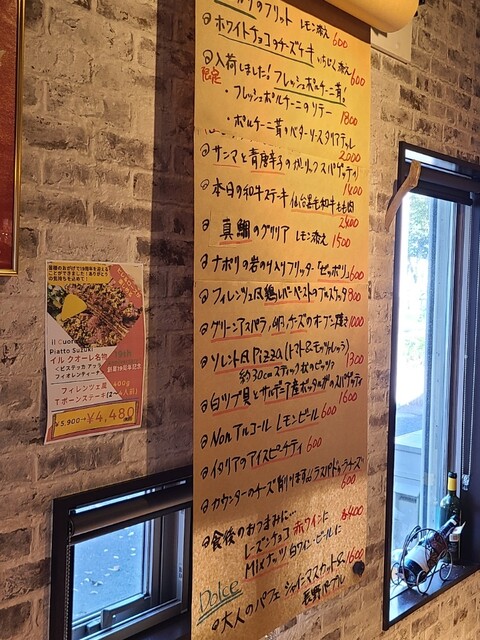 のフリット レモン添え 600
ホワイトチョコのチーズケーキ いちじく添え 600
入荷しました! フレッシュポルチーニ茸!
限定
・フレッシュポルチーニのソテー 1800
・ポルチーニ茸のバターソースタリアテッレ 2000
サンマと青唐辛子のガーリックスパゲッティ 1400
本日の和牛ステーキ 仙台黒毛和牛もも肉 2400
真鯛のグリリア レモン添え 1500
ナポリの岩のり入りフリッター "ゼッポリ" 600
フィレンツェ風 鶏レバーペーストのブルスケッタ 800
グリーンアスパラ、卵、チーズのオーブン焼き 1000
ソレント風Pizza (トマト&モッツァレラ) 1300
約30cmスティック状のピッツァ
白ツブ貝とサルデーニャ産ボッタルガのスパゲティ 1600
Nonアルコール レモンビール 600
イタリアのアイスピーチティ 600
カウンターのチーズ削ります♪ラスパドゥーラチーズ 600
食後のおつまみに…
レーズンチョコ 赤ワインに ¥400
Mixナッツ 白ワイン・ビールに
Dolce
大人のパフェ シャインマスカット& 1600
長野パープル
皆様のおかげで19周年を迎える
ことができました!ありがとう
の気持ちを込めて!
il Cuore
Piatto Suzuki
イル クオーレ名物
＜ビステッカ アッラ
フィオレンティーナ
19th
創業19周年記念
フィレンツェ風 600g
Tボーンステーキ(2~4人前)
¥5,900→¥4,480